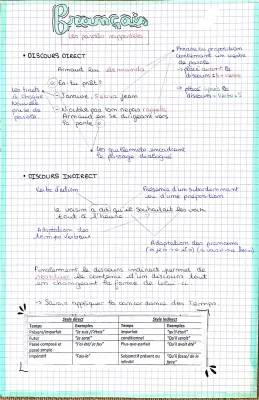 Français
Les paroles rapportées
• DISCOURS DIRECT
Phrase ou proposition
contenant un verbe
de parole
→ placé avant le
discours :
→ placé après le
discours
Armand lui demanda
Les tirets
à chaque
Nouvelle
prise de
parole.
- Es-tu prêt?
- J'arrive, Jean
- N'oublie pas ton repas rappela
Armand en se dirigeant vers
la porte
Les guillemets encadrent
le passage dialogué
• DISCOURS INDIRECT
Verbe d'action
Présence d'un subordonnant
ou d'une préposition
le voisin a dit qu'il souhaitait les voir
tout à l'heure
Adaptation des
temps verbaux
Adaptation des pronoms
Finalement le discours indirect permet de
le contenu d'un discours tout
en changeant la forme de celui-ci
→ Savoir appliquer la concordance des Temps
Style direct Style indirect
Temps Exemples Temps Exemples
Présent/imparfait "je suis / j'étais" Imparfait "qu'il était"
Futur "je serai" conditionnel "qu'il serait"
Passé composé et passé simple "j'ai été/ je fus" Plus-que-parfait "Qu'il avait été"
Impératif Subjonctif présent ou infinitif